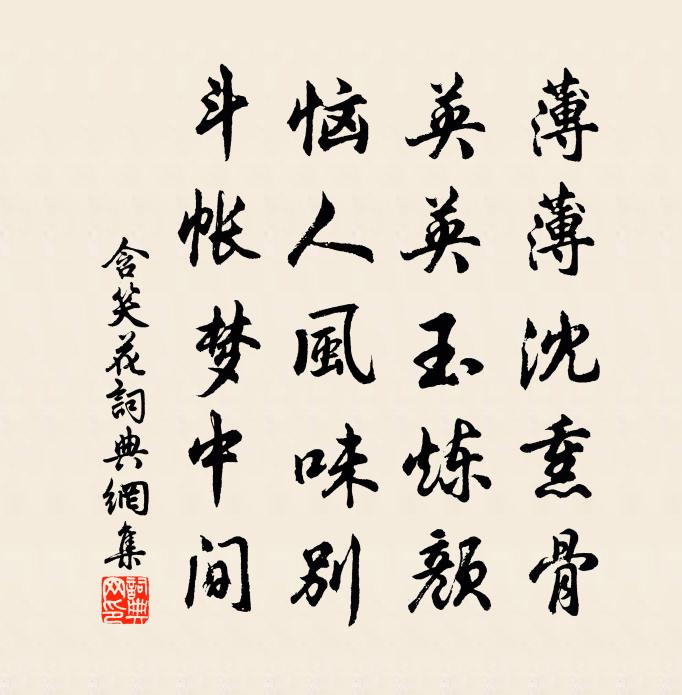 薄薄沈熏骨
英英玉炼顔
恼人風味别
斗帐梦中间
含笑花詞典網集
詞典网印